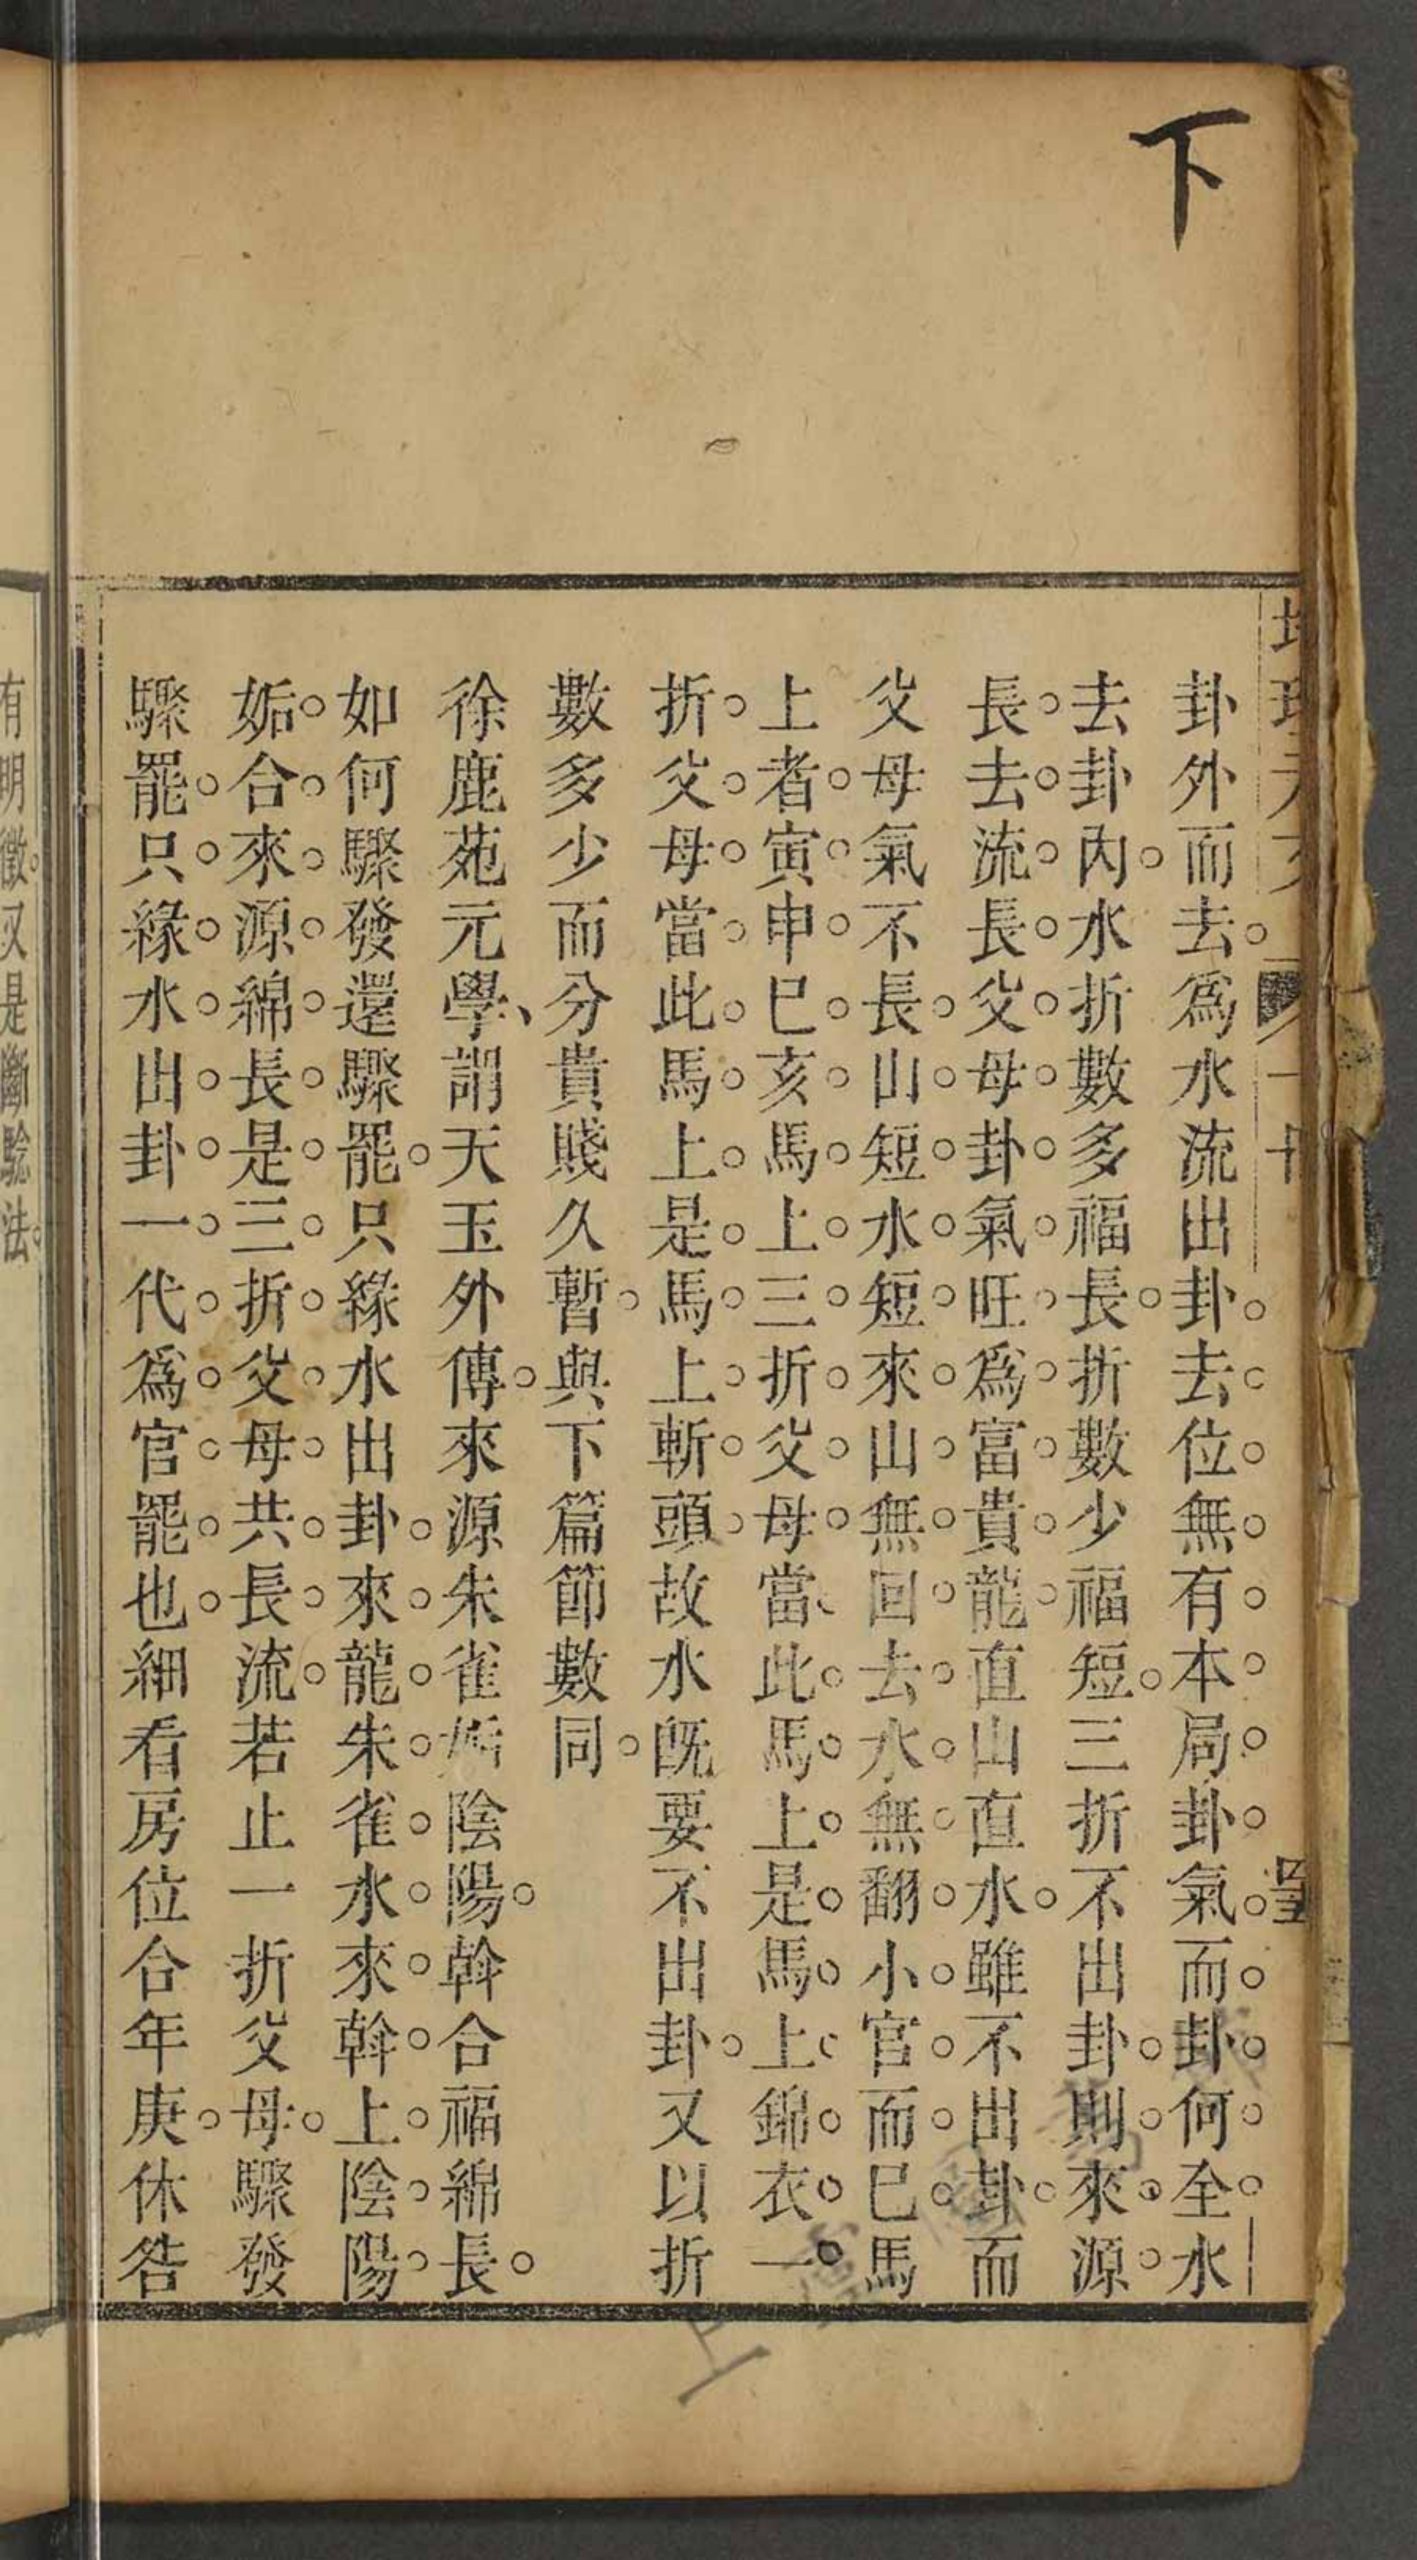 下
卦外而去。爲水流出卦。去。位。無。有。本。局。卦。氣。而。卦。何。全。水
去卦內。水折數多福長。折數少福短。三折不出卦。則。來。源。
長。去。流。長。父。母。卦。氣。旺。爲。富。貴。龍。直山直水。雖不出卦。而
父母氣不長。山。短。水。短。來。山。無。回。去。水。無。翻。小。官。而。已。馬
上者。寅。申。巳。亥。馬。上。三。折。父。母。當。此。馬。上。是。馬。上。錦。衣。一。
折。父。母。當。此。馬。上。是。馬。上。斬。頭。故水旣要不出卦。又以折
數多少而分貴賤久暫。與下篇節數同。
徐鹿苑元學、謂天玉外傳。來源朱雀姤陰陽。斡合福綿長。
如何驟發還驟罷。只緣水出卦。來。龍。朱。雀。水。來。斡。上。陰。陽。
姤。合。來。源。綿。長。是。三。折。父。母。共。長。流。若止一折父母。驟發
驟罷。只。緣。水。出。卦。一。代。爲。官。罷。也。細看房位合年庚。休咎
有明徵。又是斷騐法。